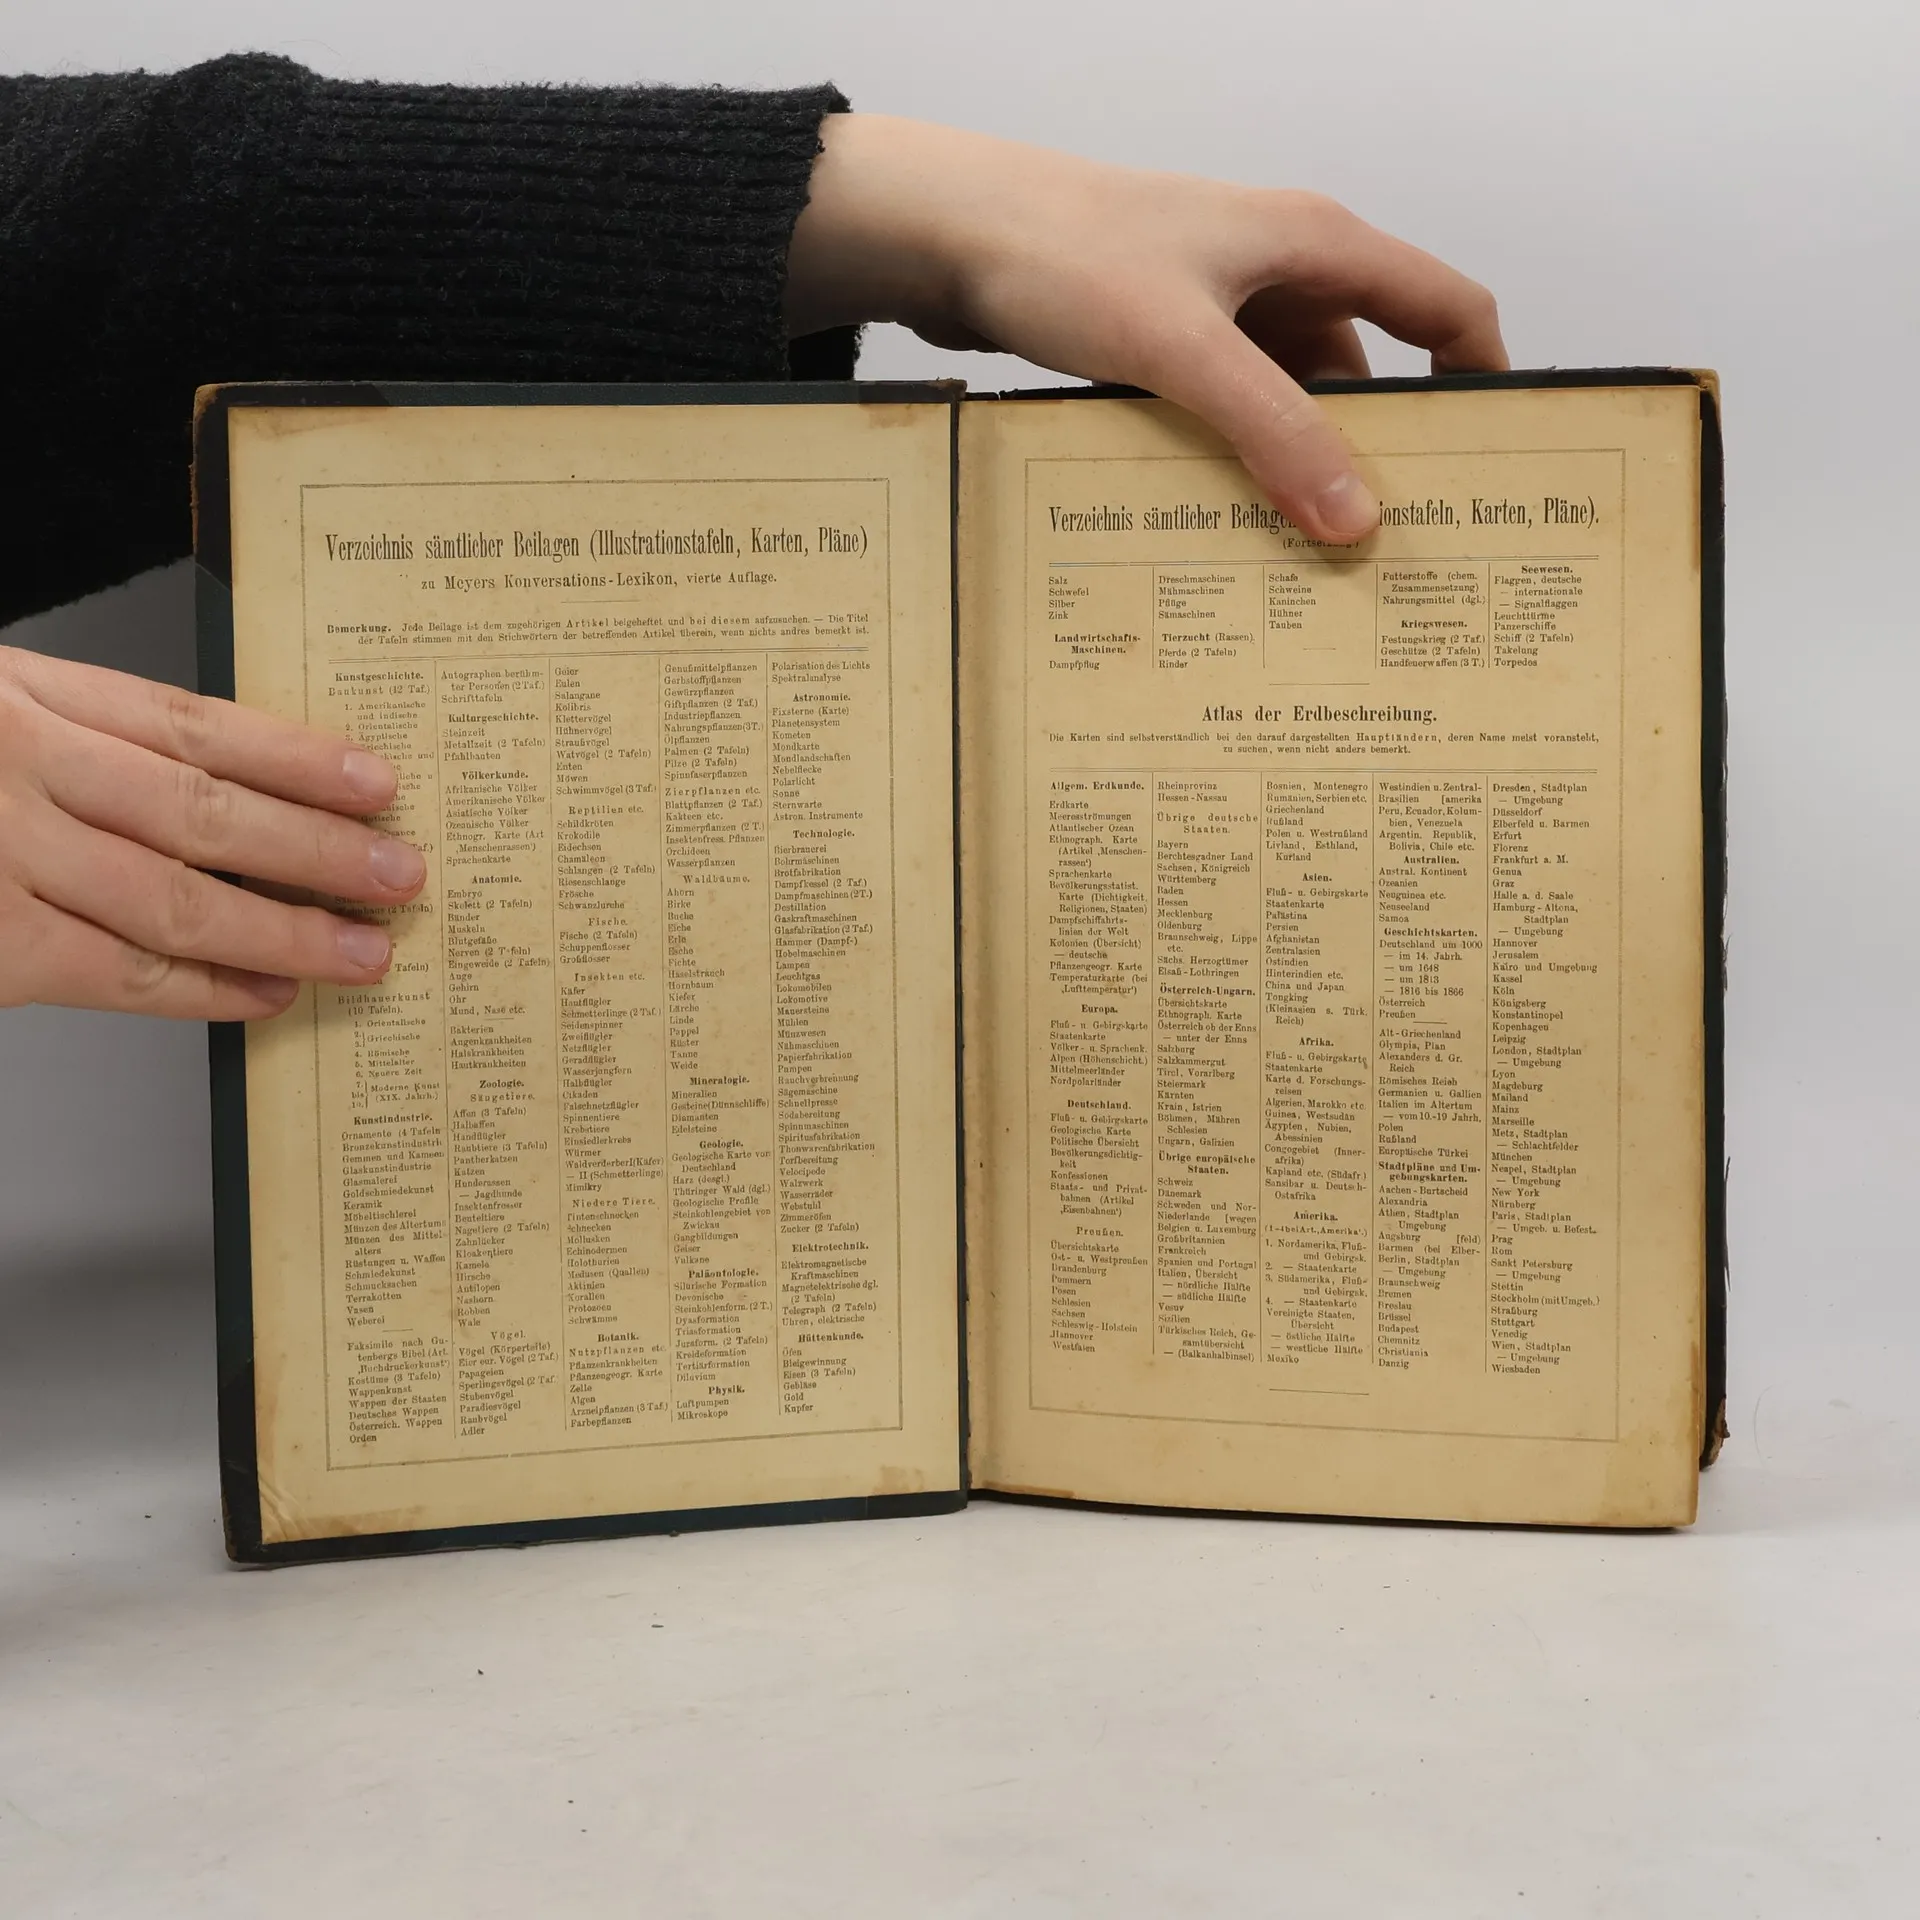 Verzeichnis sämtlicher Beilagen (Illustrationstafeln, Karten, Pläne)
zu Meyers Konversations-Lexikon, vierte Auflage.
Bemerkung. Jede Beilage ist dem zugehörigen Artikel beigeheftet und bei diesem aufzusuchen. — Die Titel
der Tafeln stimmen mit den Stichwörtern der betreffenden Artikel überein, wenn nichts andres bemerkt ist.
Kunstgeschichte.
Baukunst (12 Taf.)
1. Amerikanische
und indische
2. Orientalische
3. Ägyptische
Tafeln)
Bildhauerkunst
(10 Tafeln).
1. Orientalische
2.} Griechische
3.}
4. Römische
5. Mittelalter
6. Neuere Zeit
7.} Moderne Kunst
bis} (XIX. Jahrh.)
10.}
Kunstindustrie.
Ornamente (4 Tafeln
Bronzekunstindustrie
Gemmen und Kameen
Glaskunstindustrie
Glasmalerei
Goldschmiedekunst
Keramik
Möbeltischlerei
Münzen des Altertums
Münzen des Mittel-
alters
Rüstungen u. Waffen
Schmiedekunst
Schmucksachen
Terrakotten
Vasen
Weberei
Faksimile nach Gu-
tenbergs Bibel (Art.
‚Buchdruckerkunst')
Kostüme (3 Tafeln)
Wappenkunst
Wappen der Staaten
Deutsches Wappen
Österreich. Wappen
Orden
Autographen berühm-
ter Personen (2 Taf.)
Schrifttafeln
Kulturgeschichte.
Steinzeit
Metallzeit (2 Tafeln)
Pfahlbauten
Völkerkunde.
Afrikanische Völker
Amerikanische Völker
Asiatische Völker
Ozeanische Völker
Ethnogr. Karte (Art
‚Menschenrassen')
Sprachenkarte
Anatomie.
Embryo
Skelett (2 Tafeln)
Bänder
Muskeln
Blutgefäße
Nerven (2 Tafeln)
Eingeweide (2 Tafeln)
Auge
Gehirn
Ohr
Mund, Nase etc.
Bakterien
Augenkrankheiten
Halskrankheiten
Hautkrankheiten
Zoologie.
Säugetiere.
Affen (3 Tafeln)
Halbaffen
Handflügler
Raubtiere (3 Tafeln)
Pantherkatzen
Katzen
Hunderassen
— Jagdhunde
Insektenfresser
Beuteltiere
Nagetiere (2 Tafeln)
Zahnlücker
Kloakentiere
Kamele
Hirsche
Antilopen
Nashorn
Robben
Wale
Vögel.
Vögel (Körperteile)
Eier eur. Vögel (2 Taf.)
Papageien
Sperlingsvögel (2 Taf.
Stubenvögel
Paradiesvögel
Raubvögel
Adler
Geier
Eulen
Salangane
Kolibris
Klettervögel
Hühnervögel
Straußvögel
Watvögel (2 Tafeln)
Enten
Möwen
Schwimmvögel (3 Taf.)
Reptilien etc.
Schildkröten
Krokodile
Eidechsen
Chamäleon
Schlangen (2 Tafeln)
Riesenschlange
Frösche
Schwanzlurche
Fische.
Fische (2 Tafeln)
Schuppenflosser
Großflosser
Insekten etc.
Käfer
Hautflügler
Schmetterlinge (2 Taf.)
Seidenspinner
Zweiflügler
Netzflügler
Geradflügler
Wasserjungfern
Halbflügler
Cikaden
Falschnetzflügler
Spinnentiere
Krebstiere
Einsiedlerkrebs
Würmer
Waldverderber I (Käfer)
— II (Schmetterlinge)
Mimikry
Niedere Tiere.
Tintenschnecken
Schnecken
Mollusken
Echinodermen
Holothurien
Medusen (Quallen)
Aktinien
Korallen
Protozoen
Schwämme
Botanik.
Nutzpflanzen etc.
Pflanzenkrankheiten
Pflanzengeogr. Karte
Zelle
Algen
Arzneipflanzen (3 Taf.)
Farbepflanzen
Genußmittelpflanzen
Gerbstoffpflanzen
Gewürzpflanzen
Giftpflanzen (2 Taf.)
Industriepflanzen
Nahrungspflanzen (3 T.)
Ölpflanzen
Palmen (2 Tafeln)
Pilze (2 Tafeln)
Spinnfaserpflanzen
Zierpflanzen etc.
Blattpflanzen (2 Taf.)
Kakteen etc.
Zimmerpflanzen (2 T.)
Insektenfress. Pflanzen
Orchideen
Wasserpflanzen
Waldbäume.
Ahorn
Birke
Buche
Eiche
Erle
Esche
Fichte
Haselstrauch
Hornbaum
Kiefer
Lärche
Linde
Pappel
Rüster
Tanne
Weide
Mineralogie.
Mineralien
Gesteine (Dünnschliffe)
Diamanten
Edelsteine
Geologie.
Geologische Karte von
Deutschland
Harz (desgl.)
Thüringer Wald (dgl.)
Geologische Profile
Steinkohlengebiet von
Zwickau
Gangbildungen
Geiser
Vulkane
Paläontologie.
Silurische Formation
Devonische —
Steinkohlenform. (2 T.)
Dyasformation
Triasformation
Juraform. (2 Tafeln)
Kreideformation
Tertiärformation
Diluvium
Physik.
Luftpumpen
Mikroskope
Polarisation des Lichts
Spektralanalyse
Astronomie.
Fixsterne (Karte)
Planetensystem
Kometen
Mondkarte
Mondlandschaften
Nebelflecke
Polarlicht
Sonne
Sternwarte
Astron. Instrumente
Technologie.
Bierbrauerei
Bohrmaschinen
Brotfabrikation
Dampfkessel (2 Taf.)
Dampfmaschinen (2 T.)
Destillation
Gaskraftmaschinen
Glasfabrikation (2 Taf.)
Hammer (Dampf-)
Hobelmaschinen
Lampen
Leuchtgas
Lokomobilen
Lokomotive
Mauersteine
Mühlen
Münzwesen
Nähmaschinen
Papierfabrikation
Pumpen
Rauchverbrennung
Sägemaschine
Schnellpresse
Sodabereitung
Spinnmaschinen
Spiritusfabrikation
Thonwarenfabrikation
Torfbereitung
Velocipede
Walzwerk
Wasserräder
Webstuhl
Zimmeröfen
Zucker (2 Tafeln)
Elektrotechnik.
Elektromagnetische
Kraftmaschinen
Magnetelektrische dgl.
(2 Tafeln)
Telegraph (2 Tafeln)
Uhren, elektrische
Hüttenkunde.
Öfen
Bleigewinnung
Eisen (3 Tafeln)
Gebläse
Gold
Kupfer
Verzeichnis sämtlicher Beilagen ionstafeln, Karten, Pläne).
Salz
Schwefel
Silber
Zink
Landwirtschafts-
Maschinen.
Dampfpflug
Dreschmaschinen
Mähmaschinen
Pflüge
Sämaschinen
Tierzucht (Rassen).
Pferde (2 Tafeln)
Rinder
Schafe
Schweine
Kaninchen
Hühner
Tauben
Futterstoffe (chem.
Zusammensetzung)
Nahrungsmittel (dgl.)
Kriegswesen.
Festungskrieg (2 Taf.)
Geschütze (2 Tafeln)
Handfeuerwaffen (3 T.)
Seewesen.
Flaggen, deutsche
— internationale
— Signalflaggen
Leuchttürme
Panzerschiffe
Schiff (2 Tafeln)
Takelung
Torpedos
Atlas der Erdbeschreibung.
Die Karten sind selbstverständlich bei den darauf dargestellten Hauptländern, deren Name meist voransteht,
zu suchen, wenn nicht anders bemerkt.
Allgem. Erdkunde.
Erdkarte
Meeresströmungen
Atlantischer Ozean
Ethnograph. Karte
(Artikel ‚Menschen-
rassen')
Sprachenkarte
Bevölkerungsstatist.
Karte (Dichtigkeit,
Religionen, Staaten)
Dampfschiffahrts-
linien der Welt
Kolonien (Übersicht)
— deutsche
Pflanzengeogr. Karte
Temperaturkarte (bei
‚Lufttemperatur')
Europa.
Fluß- u. Gebirgskarte
Staatenkarte
Völker- u. Sprachenk.
Alpen (Höhenschicht.)
Mittelmeerländer
Nordpolarländer
Deutschland.
Fluß- u. Gebirgskarte
Geologische Karte
Politische Übersicht
Bevölkerungsdichtig-
keit
Konfessionen
Staats- und Privat-
bahnen (Artikel
‚Eisenbahnen')
Preußen.
Übersichtskarte
Ost- u. Westpreußen
Brandenburg
Pommern
Posen
Schlesien
Sachsen
Schleswig-Holstein
Hannover
Westfalen
Rheinprovinz
Hessen-Nassau
Übrige deutsche
Staaten.
Bayern
Berchtesgadner Land
Sachsen, Königreich
Württemberg
Baden
Hessen
Mecklenburg
Oldenburg
Braunschweig, Lippe
etc.
Sächs. Herzogtümer
Elsaß-Lothringen
Österreich-Ungarn.
Übersichtskarte
Ethnograph. Karte
Österreich ob der Enns
— unter der Enns
Salzburg
Salzkammergut
Tirol, Vorarlberg
Steiermark
Kärnten
Krain, Istrien
Böhmen, Mähren
Schlesien
Ungarn, Galizien
Übrige europäische
Staaten.
Schweiz
Dänemark
Schweden und Nor-
Niederlande [wegen
Belgien u. Luxemburg
Großbritannien
Frankreich
Spanien und Portugal
Italien, Übersicht
— nördliche Hälfte
— südliche Hälfte
Vesuv
Sizilien
Türkisches Reich, Ge-
samtübersicht
— (Balkanhalbinsel)
Bosnien, Montenegro
Rumänien, Serbien etc.
Griechenland
Rußland
Polen u. Westrußland
Livland, Esthland,
Kurland
Asien.
Fluß- u. Gebirgskarte
Staatenkarte
Palästina
Persien
Afghanistan
Zentralasien
Ostindien
Hinterindien etc.
China und Japan
Tongking
(Kleinasien s. Türk.
Reich)
Afrika.
Fluß- u. Gebirgskarte
Staatenkarte
Karte d. Forschungs-
reisen
Algerien, Marokko etc.
Guinea, Westsudân
Ägypten, Nubien,
Abessinien
Congogebiet (Inner-
afrika)
Kapland etc. (Südafr.)
Sansibar u. Deutsch-
Ostafrika
Amerika.
(1-4 bei Art. ‚Amerika'.)
1. Nordamerika, Fluß-
und Gebirgsk.
2. — Staatenkarte
3. Südamerika, Fluß-
und Gebirgsk.
4. — Staatenkarte
Vereinigte Staaten,
Übersicht
— östliche Hälfte
— westliche Hälfte
Mexiko
Westindien u. Zentral-
Brasilien [amerika
Peru, Ecuador, Kolum-
bien, Venezuela
Argentin. Republik,
Bolivia, Chile etc.
Australien.
Austral. Kontinent
Ozeanien
Neuguinea etc.
Neuseeland
Samoa
Geschichtskarten.
Deutschland um 1000
— im 14. Jahrh.
— um 1648
— um 1813
— 1816 bis 1866
Österreich
Preußen
Alt-Griechenland
Olympia, Plan
Alexanders d. Gr.
Reich
Römisches Reich
Germanien u. Gallien
Italien im Altertum
— vom 10.-19. Jahrh.
Polen
Rußland
Europäische Türkei
Stadtpläne und Um-
gebungskarten.
Aachen-Burtscheid
Alexandria
Athen, Stadtplan
— Umgebung
Augsburg [feld)
Barmen (bei Elber-
Berlin, Stadtplan
— Umgebung
Braunschweig
Bremen
Breslau
Brüssel
Budapest
Chemnitz
Christiania
Danzig
Dresden, Stadtplan
— Umgebung
Düsseldorf
Elberfeld u. Barmen
Erfurt
Florenz
Frankfurt a. M.
Genua
Graz
Halle a. d. Saale
Hamburg-Altona,
Stadtplan
— Umgebung
Hannover
Jerusalem
Kairo und Umgebung
Kassel
Köln
Königsberg
Konstantinopel
Kopenhagen
Leipzig
London, Stadtplan
— Umgebung
Lyon
Magdeburg
Mailand
Mainz
Marseille
Metz, Stadtplan
— Schlachtfelder
München
Neapel, Stadtplan
— Umgebung
New York
Nürnberg
Paris, Stadtplan
— Umgeb. u. Befest.
Prag
Rom
Sankt Petersburg
— Umgebung
Stettin
Stockholm (mit Umgeb.)
Straßburg
Stuttgart
Venedig
Wien, Stadtplan
— Umgebung
Wiesbaden